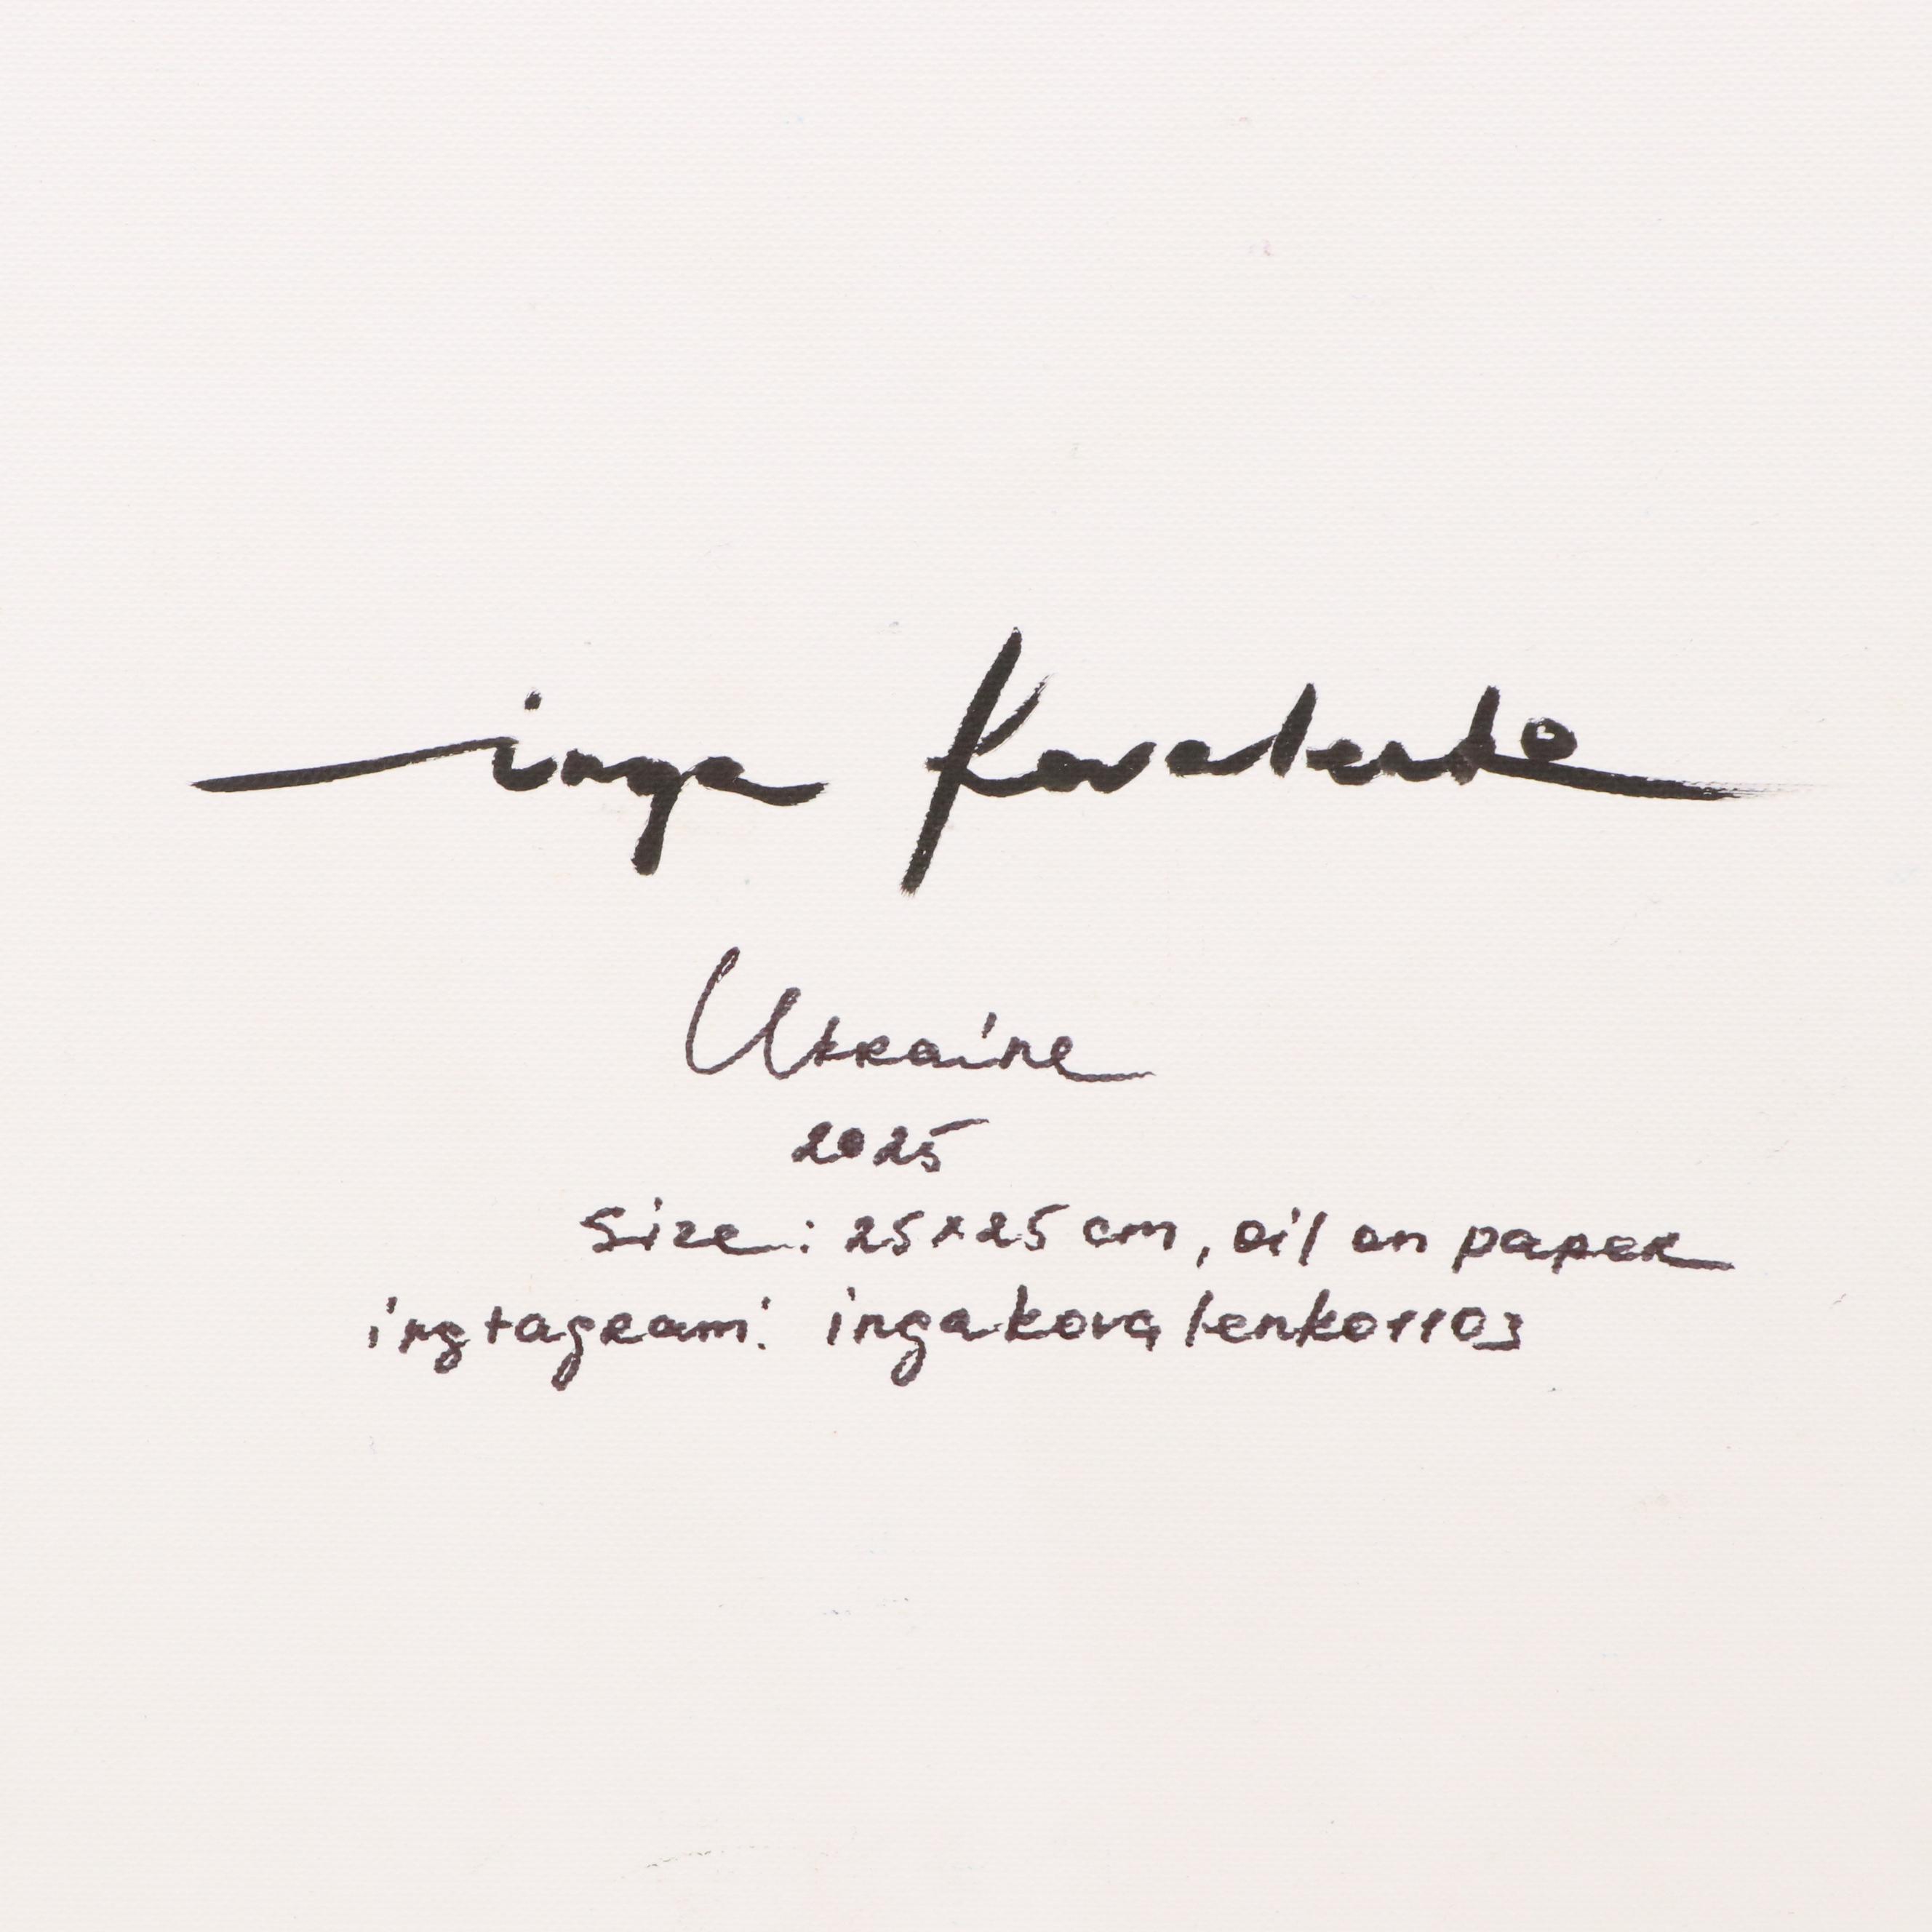 inga Kovalenko
Ukraine
2025
Size: 25x25 cm, oil on paper
ingtagram: ingakovalenko1103